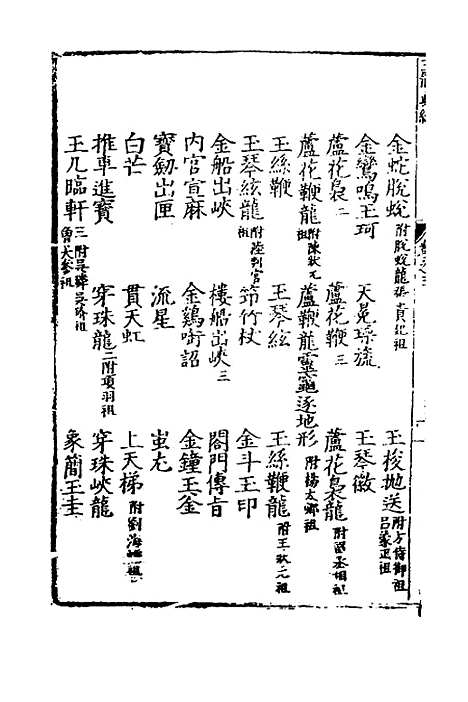 金蛇脫蛻 附脫蛻龍張貴妃祖 天晃瑔旒 玉梭拋送 附方侍御祖呂蒙正祖
金鸞鳴玉珂 玉琴徽
蘆花裊 二 蘆花鞭 三 蘆花裊龍 附丞相祖
蘆花鞭龍 附陳狀元祖 蘆鞭龍靈龜逐地形 附楊太鄉祖
玉絲鞭 玉琴絃 玉絲鞭龍 附王狀元祖
玉琴絃龍 附陸判官祖 筇竹杖 金斗玉印
金船出峽 樓船出峽 三 閣門傳旨
內官宣麻 金鷄啣詔 金鐘玉金
寶劔出匣 流星 蚩尤
白芒 貫天虹 上天梯 附劉海祖
推車進寶 穿珠龍 二附項羽祖 穿珠峽龍
玉几臨軒 三附吳璘吳玠祖魯大參祖 象簡玉圭